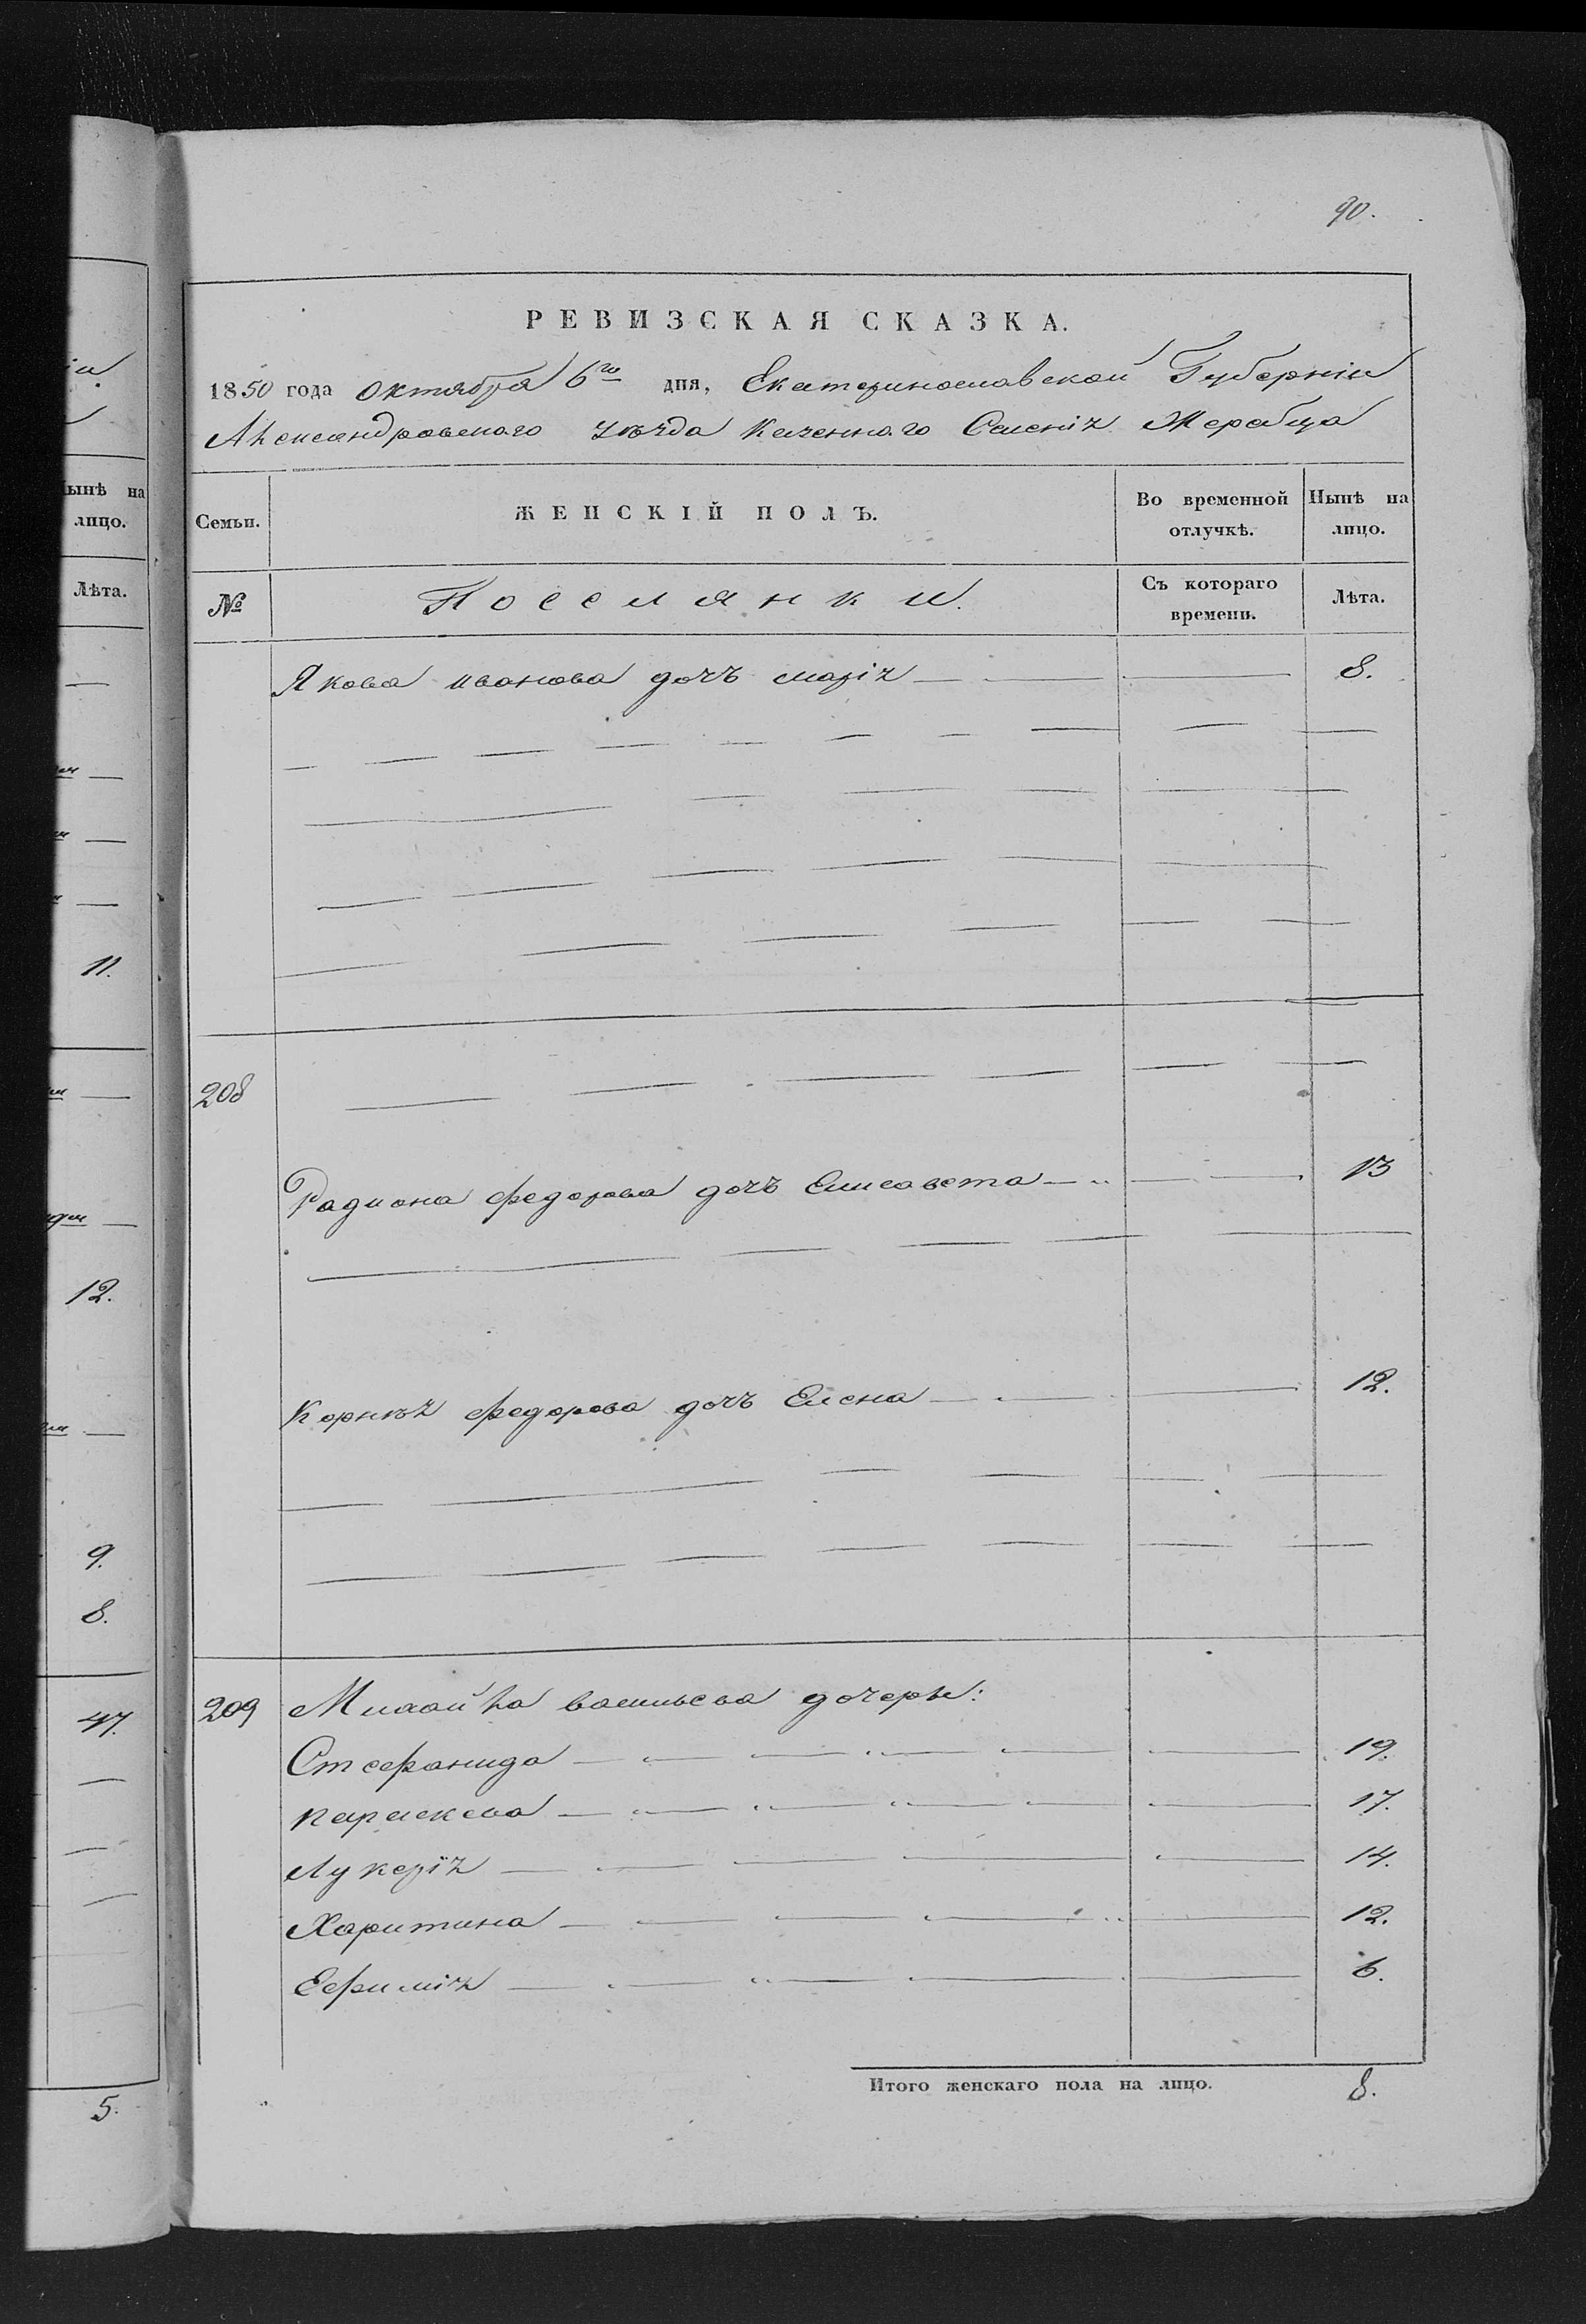 90.
РЕВИЗСКАЯ СКАЗКА.
1850 года Октября 6го дня, Екатеринославской Губерніи
Александровского уѣзда Казенного Селенія Жеребца
Семьи.
ЖЕНСКІЙ ПОЛЪ.
Во временной отлучкѣ.
Нынѣ на лицо.
№
Поселянки.
Съ котораго времени.
Лѣта.
Якова иванова дочъ марія 8.
208
Радиона федорова дочъ Елисавета 13
Корнѣя федорова дочъ Елена 12.
209 васильева дочери:
Стефанида 19.
параскева 17.
Лукерія 14.
Харитина 12.
Ефимія 6.
Итого женскаго пола на лицо. 8.
ынѣ на
лицо.
Лѣта.
11.
12.
9.
8.
47.
5.